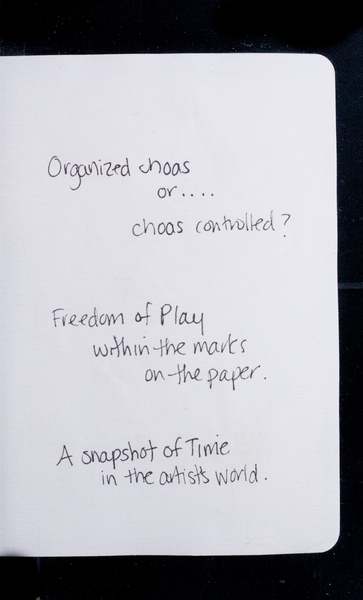 Organized choas
or....
choas controlled?
Freedom of Play
within the marks
on the paper.
A snapshot of Time
in the artists world.